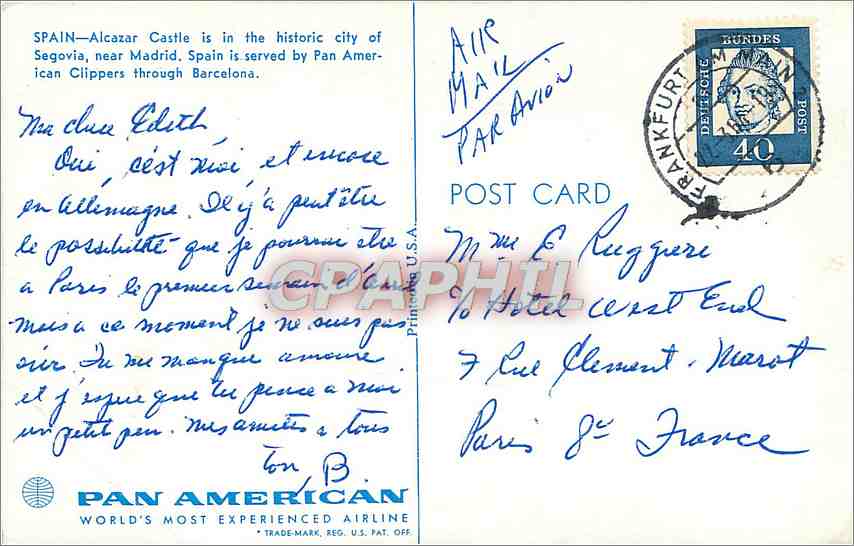 SPAIN—Alcazar Castle is in the historic city of
Segovia, near Madrid. Spain is served by Pan Amer-
ican Clippers through Barcelona.
Ma chere Edith,
Oui, c'est moi, et encore
en Allemagne. Il y'a peut être
le possibilité que je pourrai être
a Paris le premier semain d'Avril
mais a ce moment je ne suis pas
sûr. Tu me manque amoure
et j'espere que tu pence a moi
un petit peu. Mes amities a tous
ton, B.
PAN AMERICAN
WORLD'S MOST EXPERIENCED AIRLINE
* TRADE-MARK, REG. U.S. PAT. OFF.
Printed in U.S.A.
CPAPHIL
AIR
MAIL
PAR AVION
DEUTSCHE
BUNDES
POST
40
FRANKFURT AM MAIN
POST CARD
Mme E Ruggieri
c/o Hotel West End
7 Rue Clement-Marot
Paris 8e France